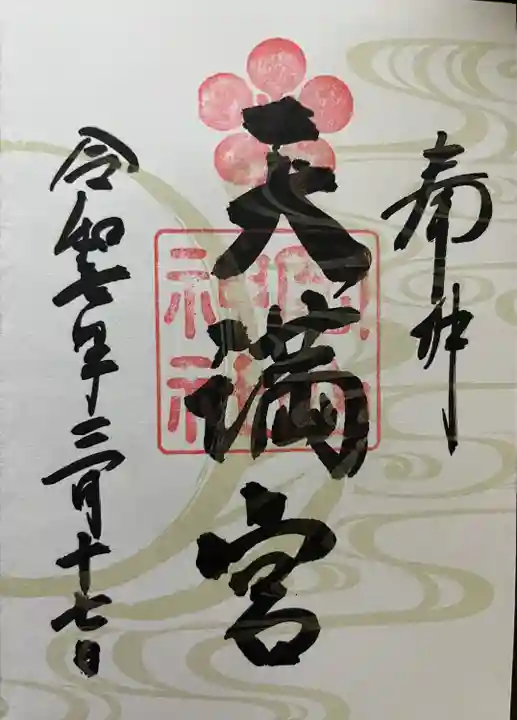 奉拝
天満宮
神社
令和七年三月十七日